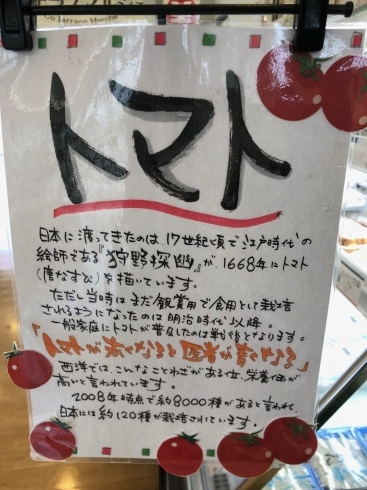 トマト
日本に渡ってきたのは、17世紀頃で江戸時代の
絵師である『狩野探幽』が、1668年にトマト
(唐なすび)を描いています。
ただし当時はまだ観賞用で食用として栽培
されるようになったのは明治時代以降。
一般家庭にトマトが普及したのは戦後となります。
「トマトが赤くなると医者が青くなる」
西洋では、こんなことわざがある位、栄養価が
高いと言われています。
2008年時点で約8000種があると言われて、
日本には約120種が栽培されています。